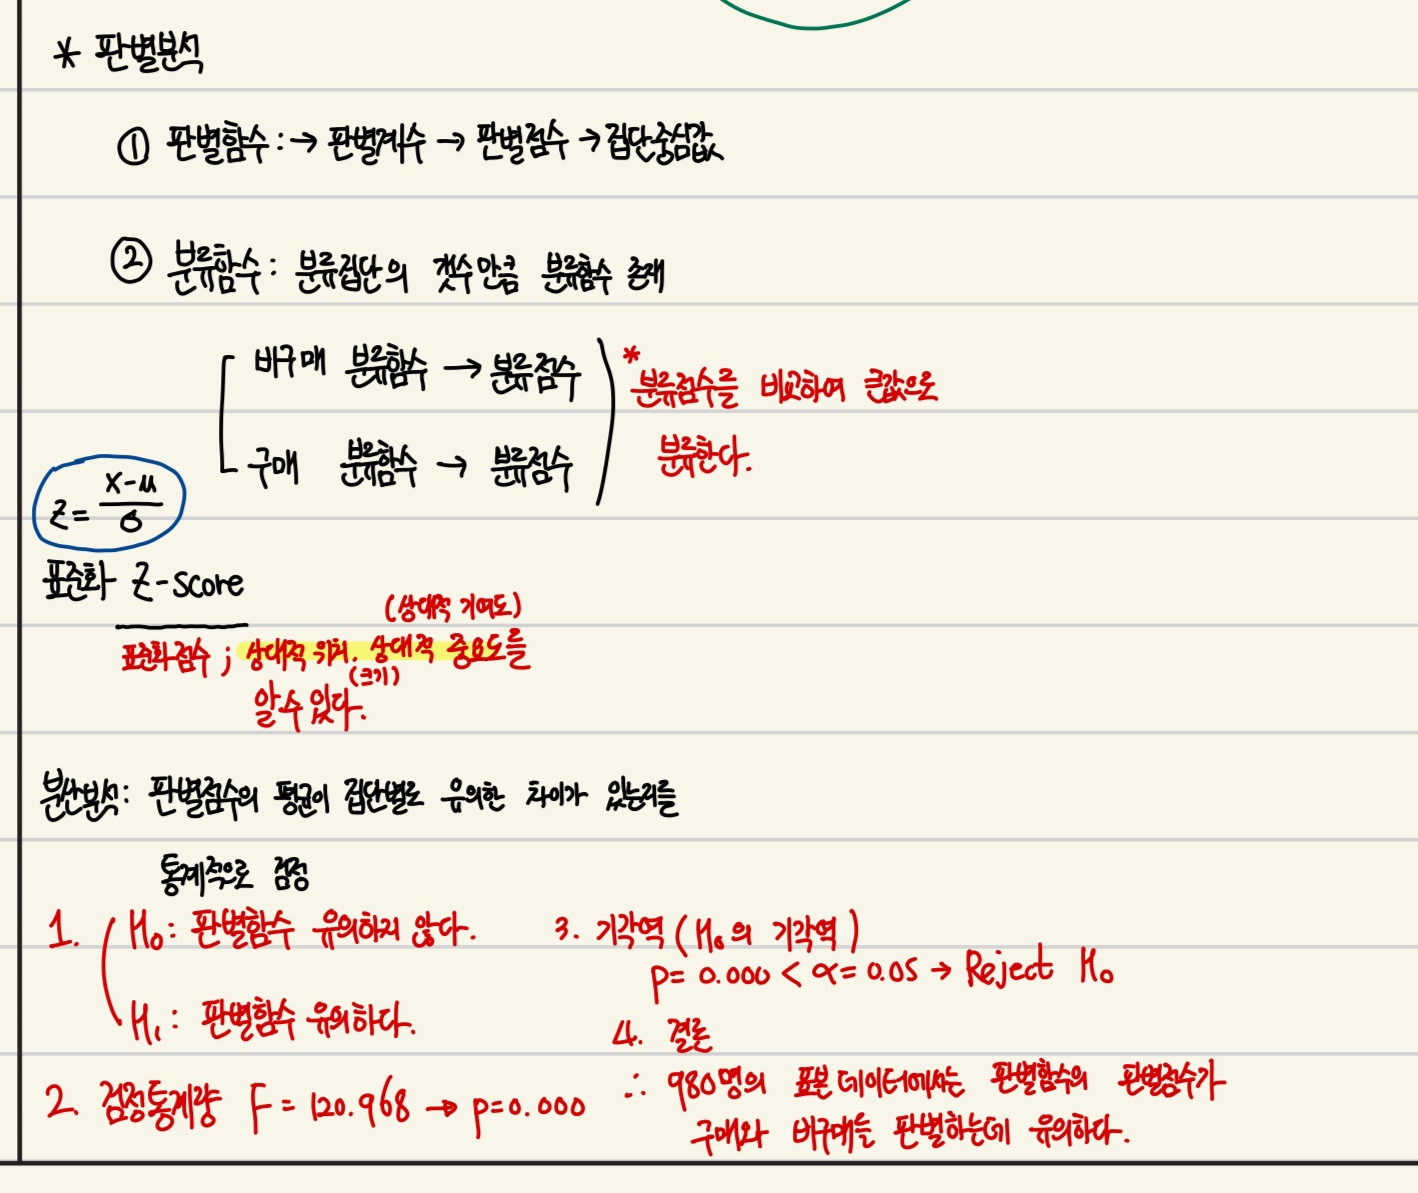 * 판별분석
① 판별함수 : → 판별계수 → 판별점수 → 집단중심값
② 분류함수 : 분류집단의 갯수만큼 분류함수 존재
비구매 분류함수 → 분류점수
구매 분류함수 → 분류점수
* 분류점수를 비교하여 큰값으로
분류한다.
z = (x-μ)/σ
표준화 Z-score
(상대적 기여도)
표준화점수 ; 상대적 위치. 상대적 중요도를
(크기)
알수있다.
분산분석 : 판별점수의 평균이 집단별로 유의한 차이가 있는지를
통계적으로 검정
1. H₀ : 판별함수 유의하지 않다.
H₁ : 판별함수 유의하다.
2. 검정통계량 F = 120.968 → p=0.000
3. 기각역 (H₀의 기각역)
p = 0.000 < α = 0.05 → Reject H₀
4. 결론
∴ 980명의 표본데이터에서는 판별함수의 판별점수가
구매와 비구매를 판별하는데 유의하다.